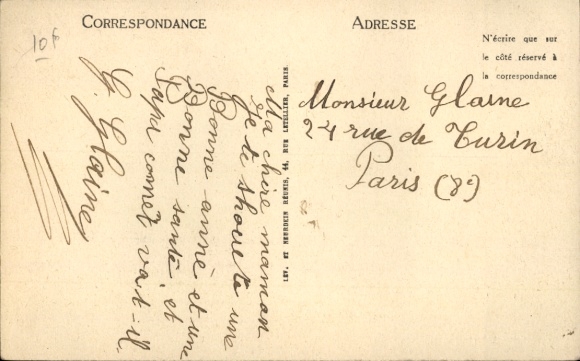 10f
CORRESPONDANCE
ADRESSE
N'écrire que sur
le côté réservé à
la correspondance
Ma chère maman
Je te shouete une
Bonne année et une
Bonne santé et
Papa comet vat-il
G. Glaine
LEV. ET NEURDEIN RÉUNIS, 44, RUE LETELLIER, PARIS.
Monsieur Glaine
24 rue de Turin
Paris (8e)